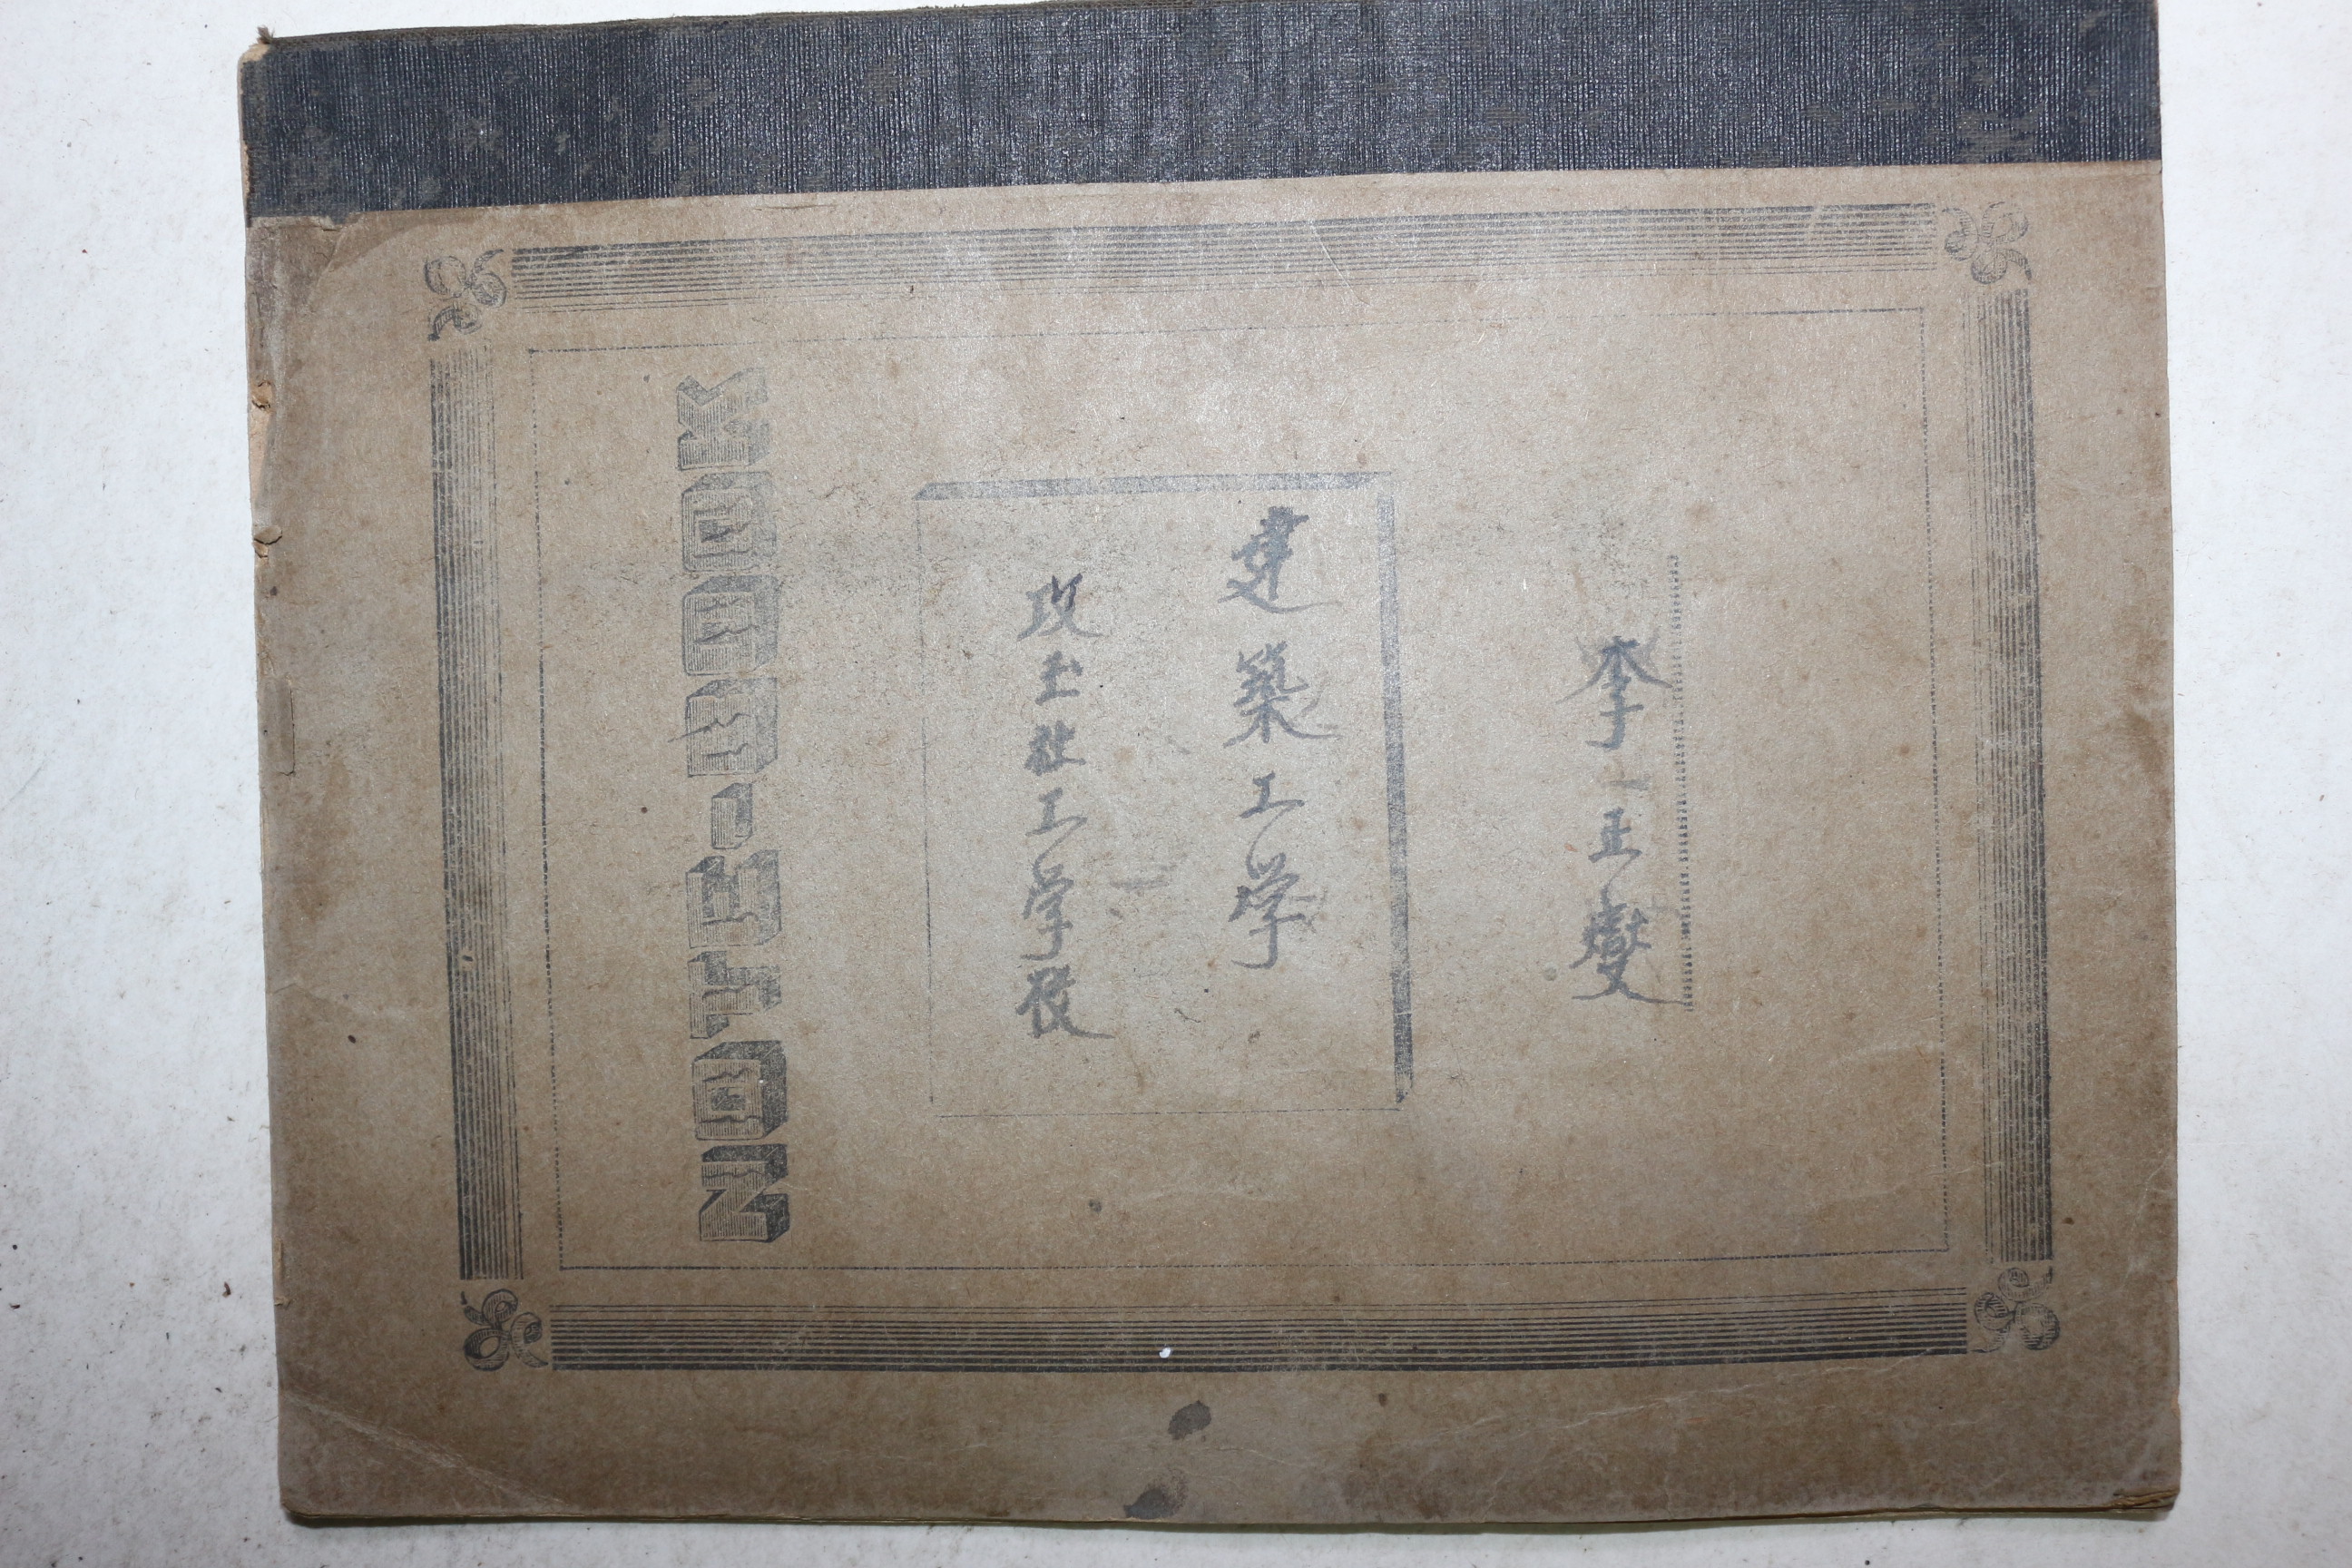 NOTE-BOOK
攻玉社工学校
建築工学
李正燮